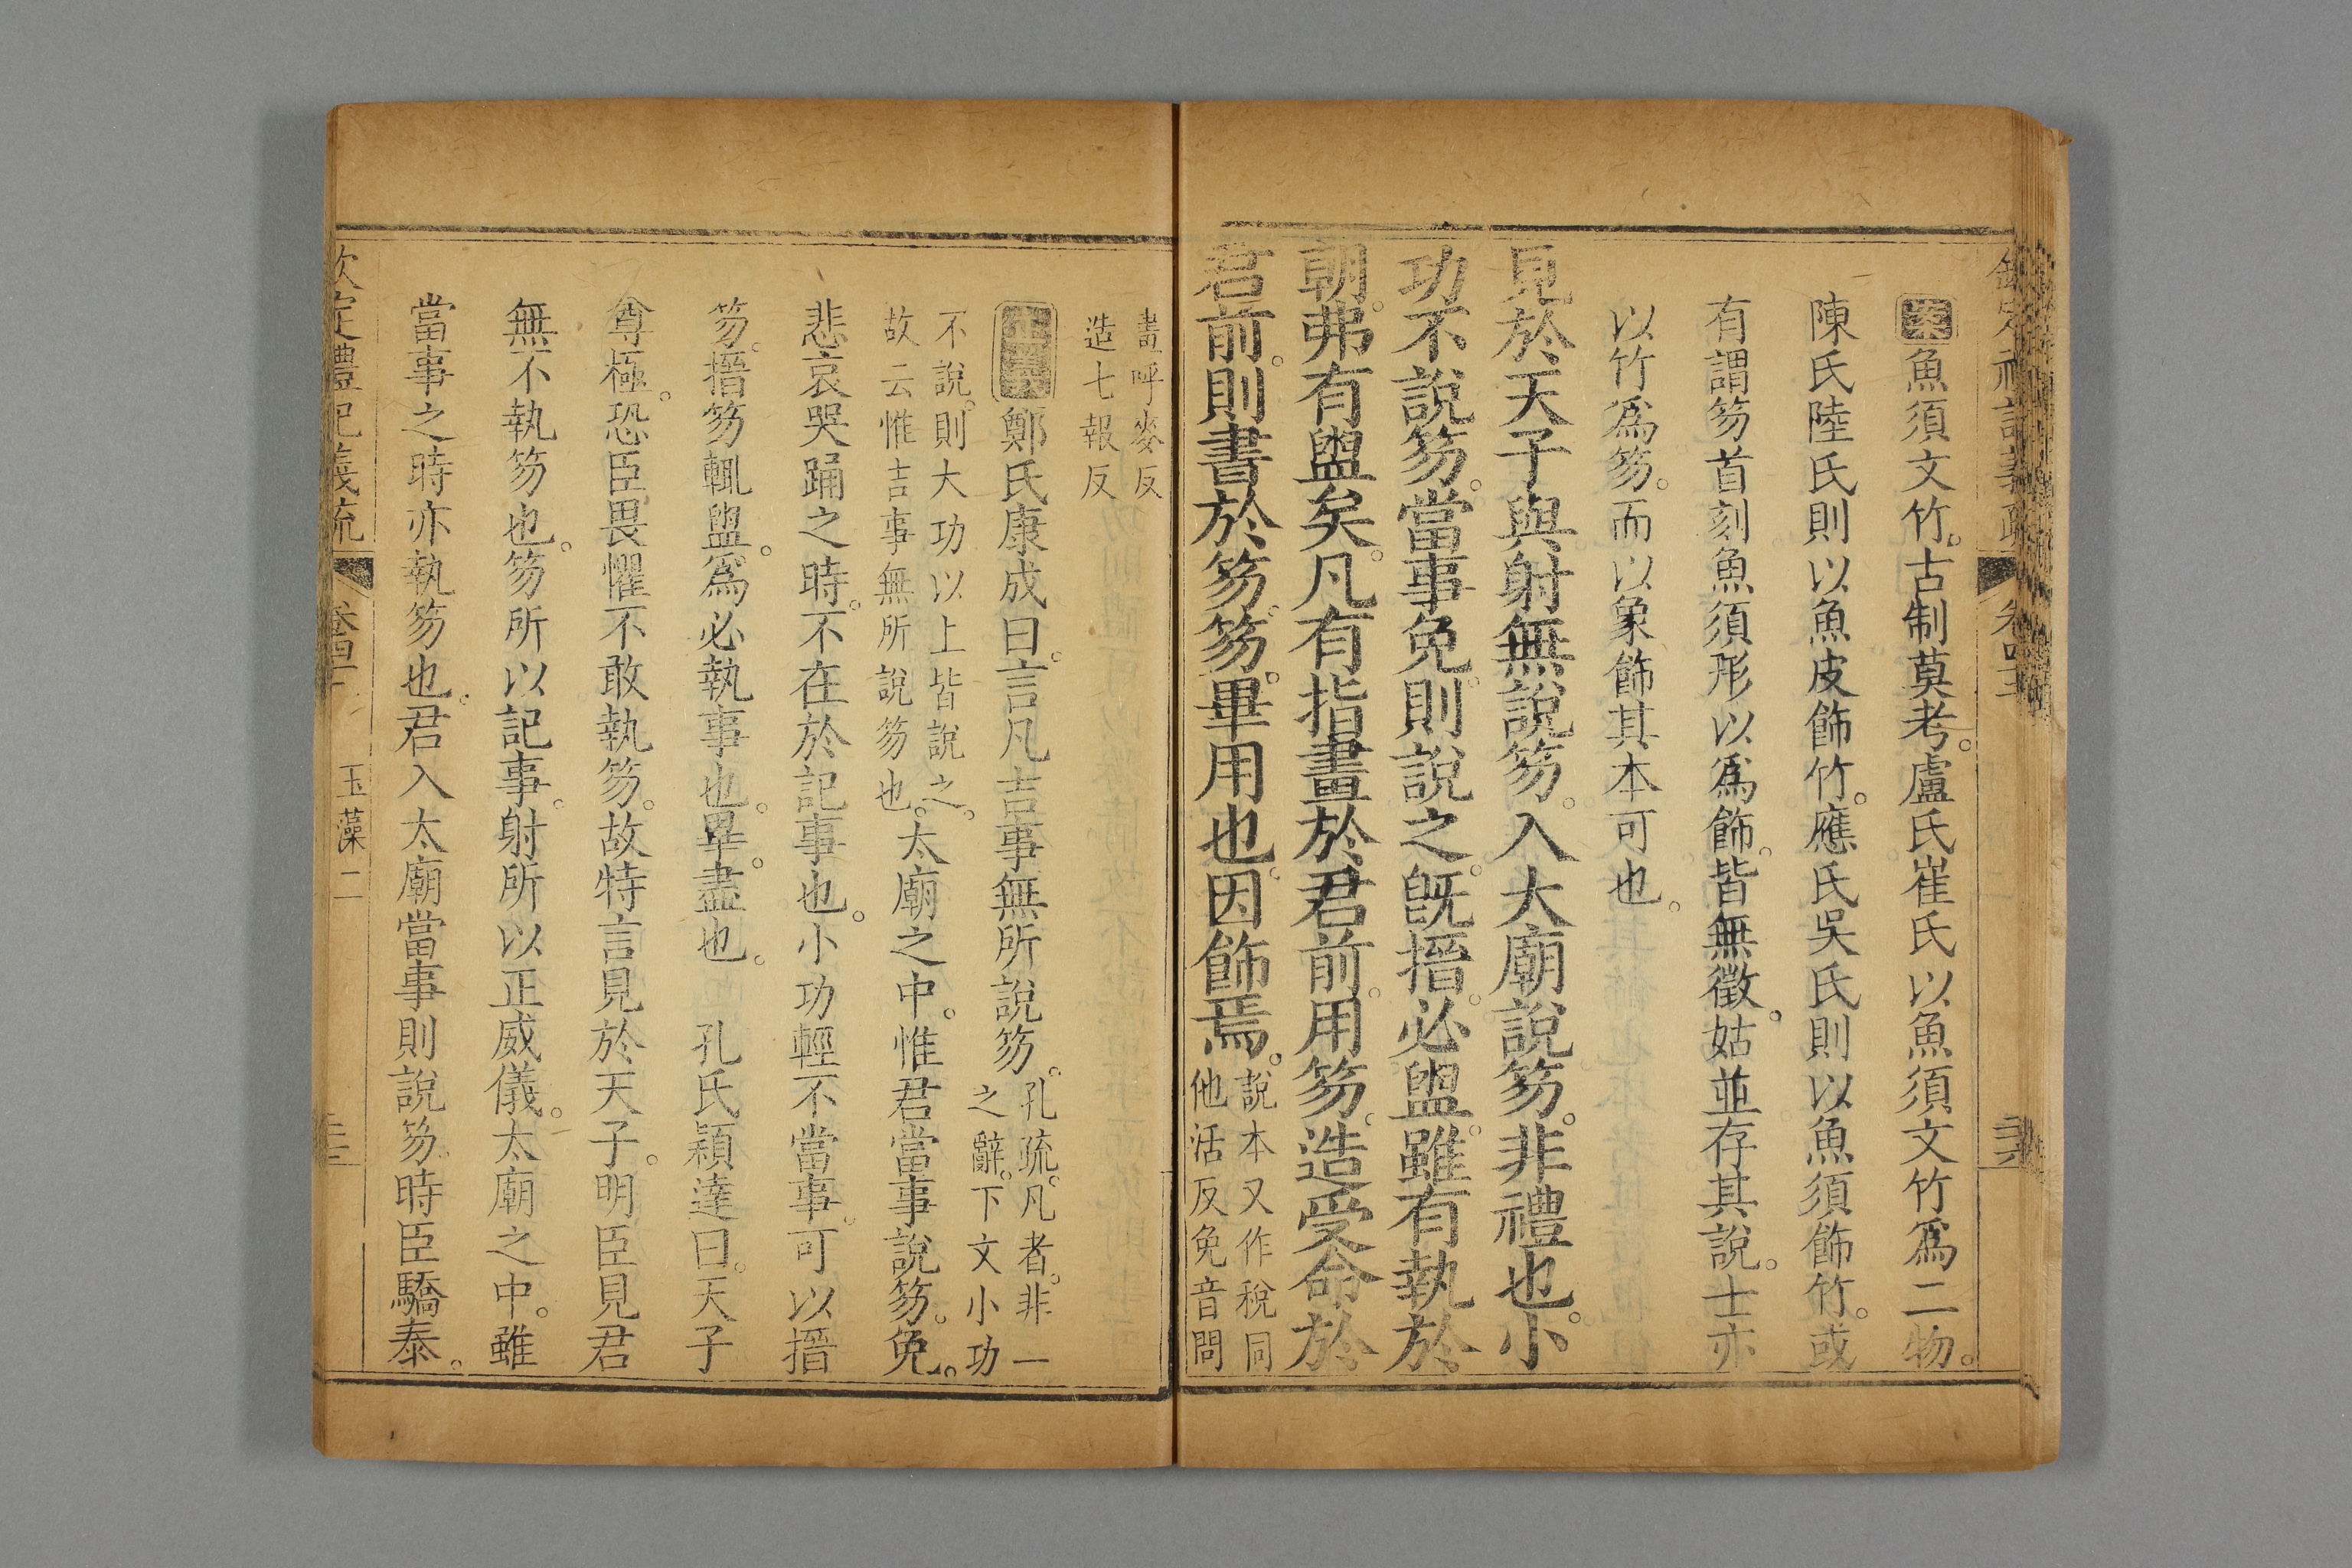 欽定禮記義疏 卷四十 三
案魚須文竹。古制莫考。盧氏崔氏以魚須文竹爲二物。
陳氏陸氏則以魚皮飾竹。應氏吳氏則以魚須飾竹。或
有謂笏首刻魚須形以爲飾。皆無徵。姑並存其說。士亦
以竹爲笏。而以象飾其本可也。
見於天子與射無說笏。入大廟說笏。非禮也。小
功不說笏。當事免。則說之。旣搢。必盥。雖有執於
朝。弗有盥矣。凡有指畫於君前。用笏。造受命於
君前。則書於笏。笏。畢用也。因飾焉。說本又作稅同
他活反免音問
畫呼麥反
造七報反
正義鄭氏康成曰。言凡吉事無所說笏。孔疏。凡者。非一
之辭。下文小功
不說。則大功以上皆說之。
故云惟吉事無所說笏也。太廟之中。惟君當事說笏。免。
悲哀哭踊之時。不在於記事也。小功輕不當事。可以搢
笏。搢笏輒盥。爲必執事也。畢。盡也。 孔氏穎達曰。天子
尊極。恐臣畏懼不敢執笏。故特言見於天子。明臣見君
無不執笏也。笏所以記事。射所以正威儀。太廟之中。雖
當事之時亦執笏也。君入太廟當事則說笏。時臣驕泰。
欽定禮記義疏 卷四十 玉藻二